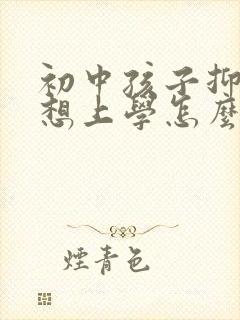 初中孩子抑
想上學怎麼
煙青色